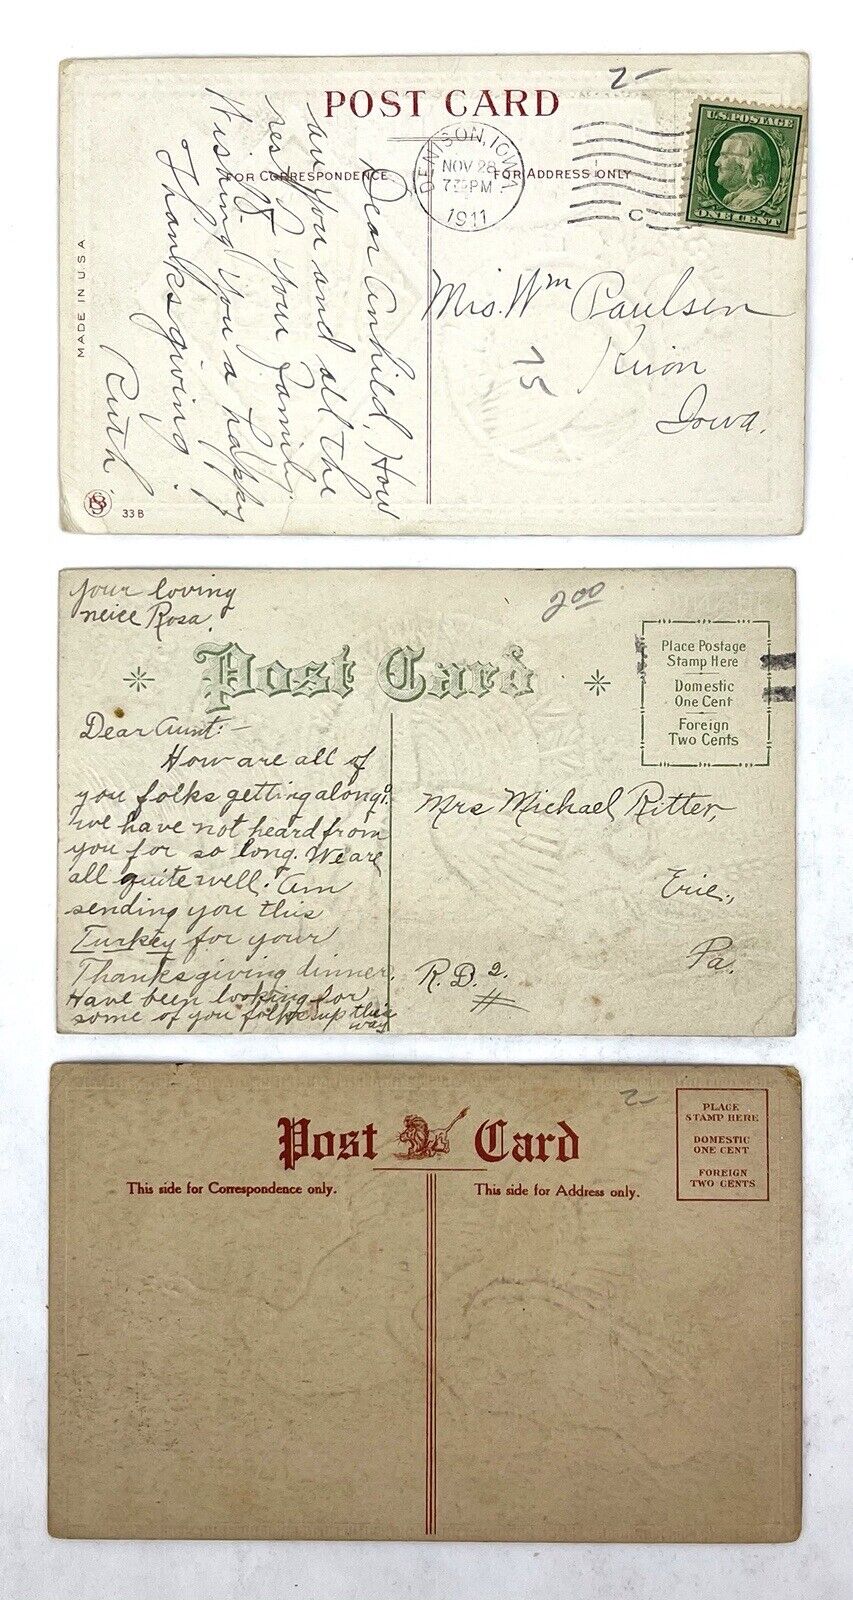 2-
POST CARD
FOR CORRESPONDENCE
FOR ADDRESS ONLY
DENISON, IOWA
NOV 28
7 PM
1911
C
U.S. POSTAGE
ONE CENT
Dear Anhild, How
are you and all the
rest of your family.
Wishing you a happy
Thanksgiving.
Ruth
Mrs. Wm Paulsen
Kiron
Iowa.
75
MADE IN U.S.A
33 B
your loving
neice Rosa.
200
Post Card
Place Postage
Stamp Here
Domestic
One Cent
Foreign
Two Cents
Dear Aunt:-
How are all of
you folks getting along?
we have not heard from
you for so long. We are
all quite well. Am
sending you this
Turkey for your
Thanksgiving dinner.
Have been looking for
some of you folks up this
way
Mrs Michael Ritter,
Erie,
Pa.
R.D. 2.
2-
Post Card
This side for Correspondence only.
This side for Address only.
PLACE
STAMP HERE
DOMESTIC
ONE CENT
FOREIGN
TWO CENTS